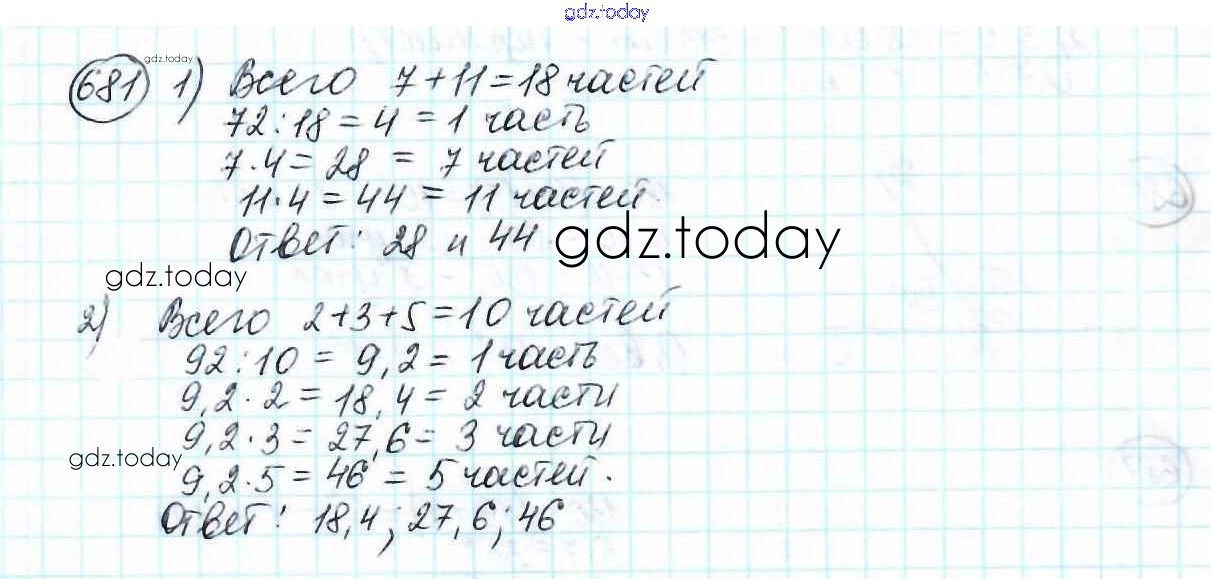 gdz.today
681 1) Всего 7+11=18 частей
gdz.today
72:18=4=1 часть
7·4=28=7 частей
11·4=44=11 частей
Ответ: 28 и 44.
gdz.today
gdz.today
2) Всего 2+3+5=10 частей
92:10=9,2=1 часть
9,2·2=18,4=2 части
9,2·3=27,6=3 части
gdz.today
9,2·5=46=5 частей.
Ответ: 18,4; 27,6; 46